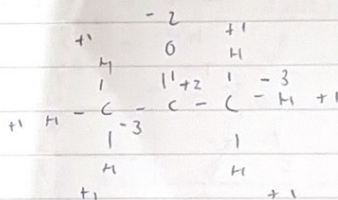 - 2
+1 O +1
H || +2 H
| | - 3
+1 H - C - C - C - H +1
| - 3 |
H H
+1 +1